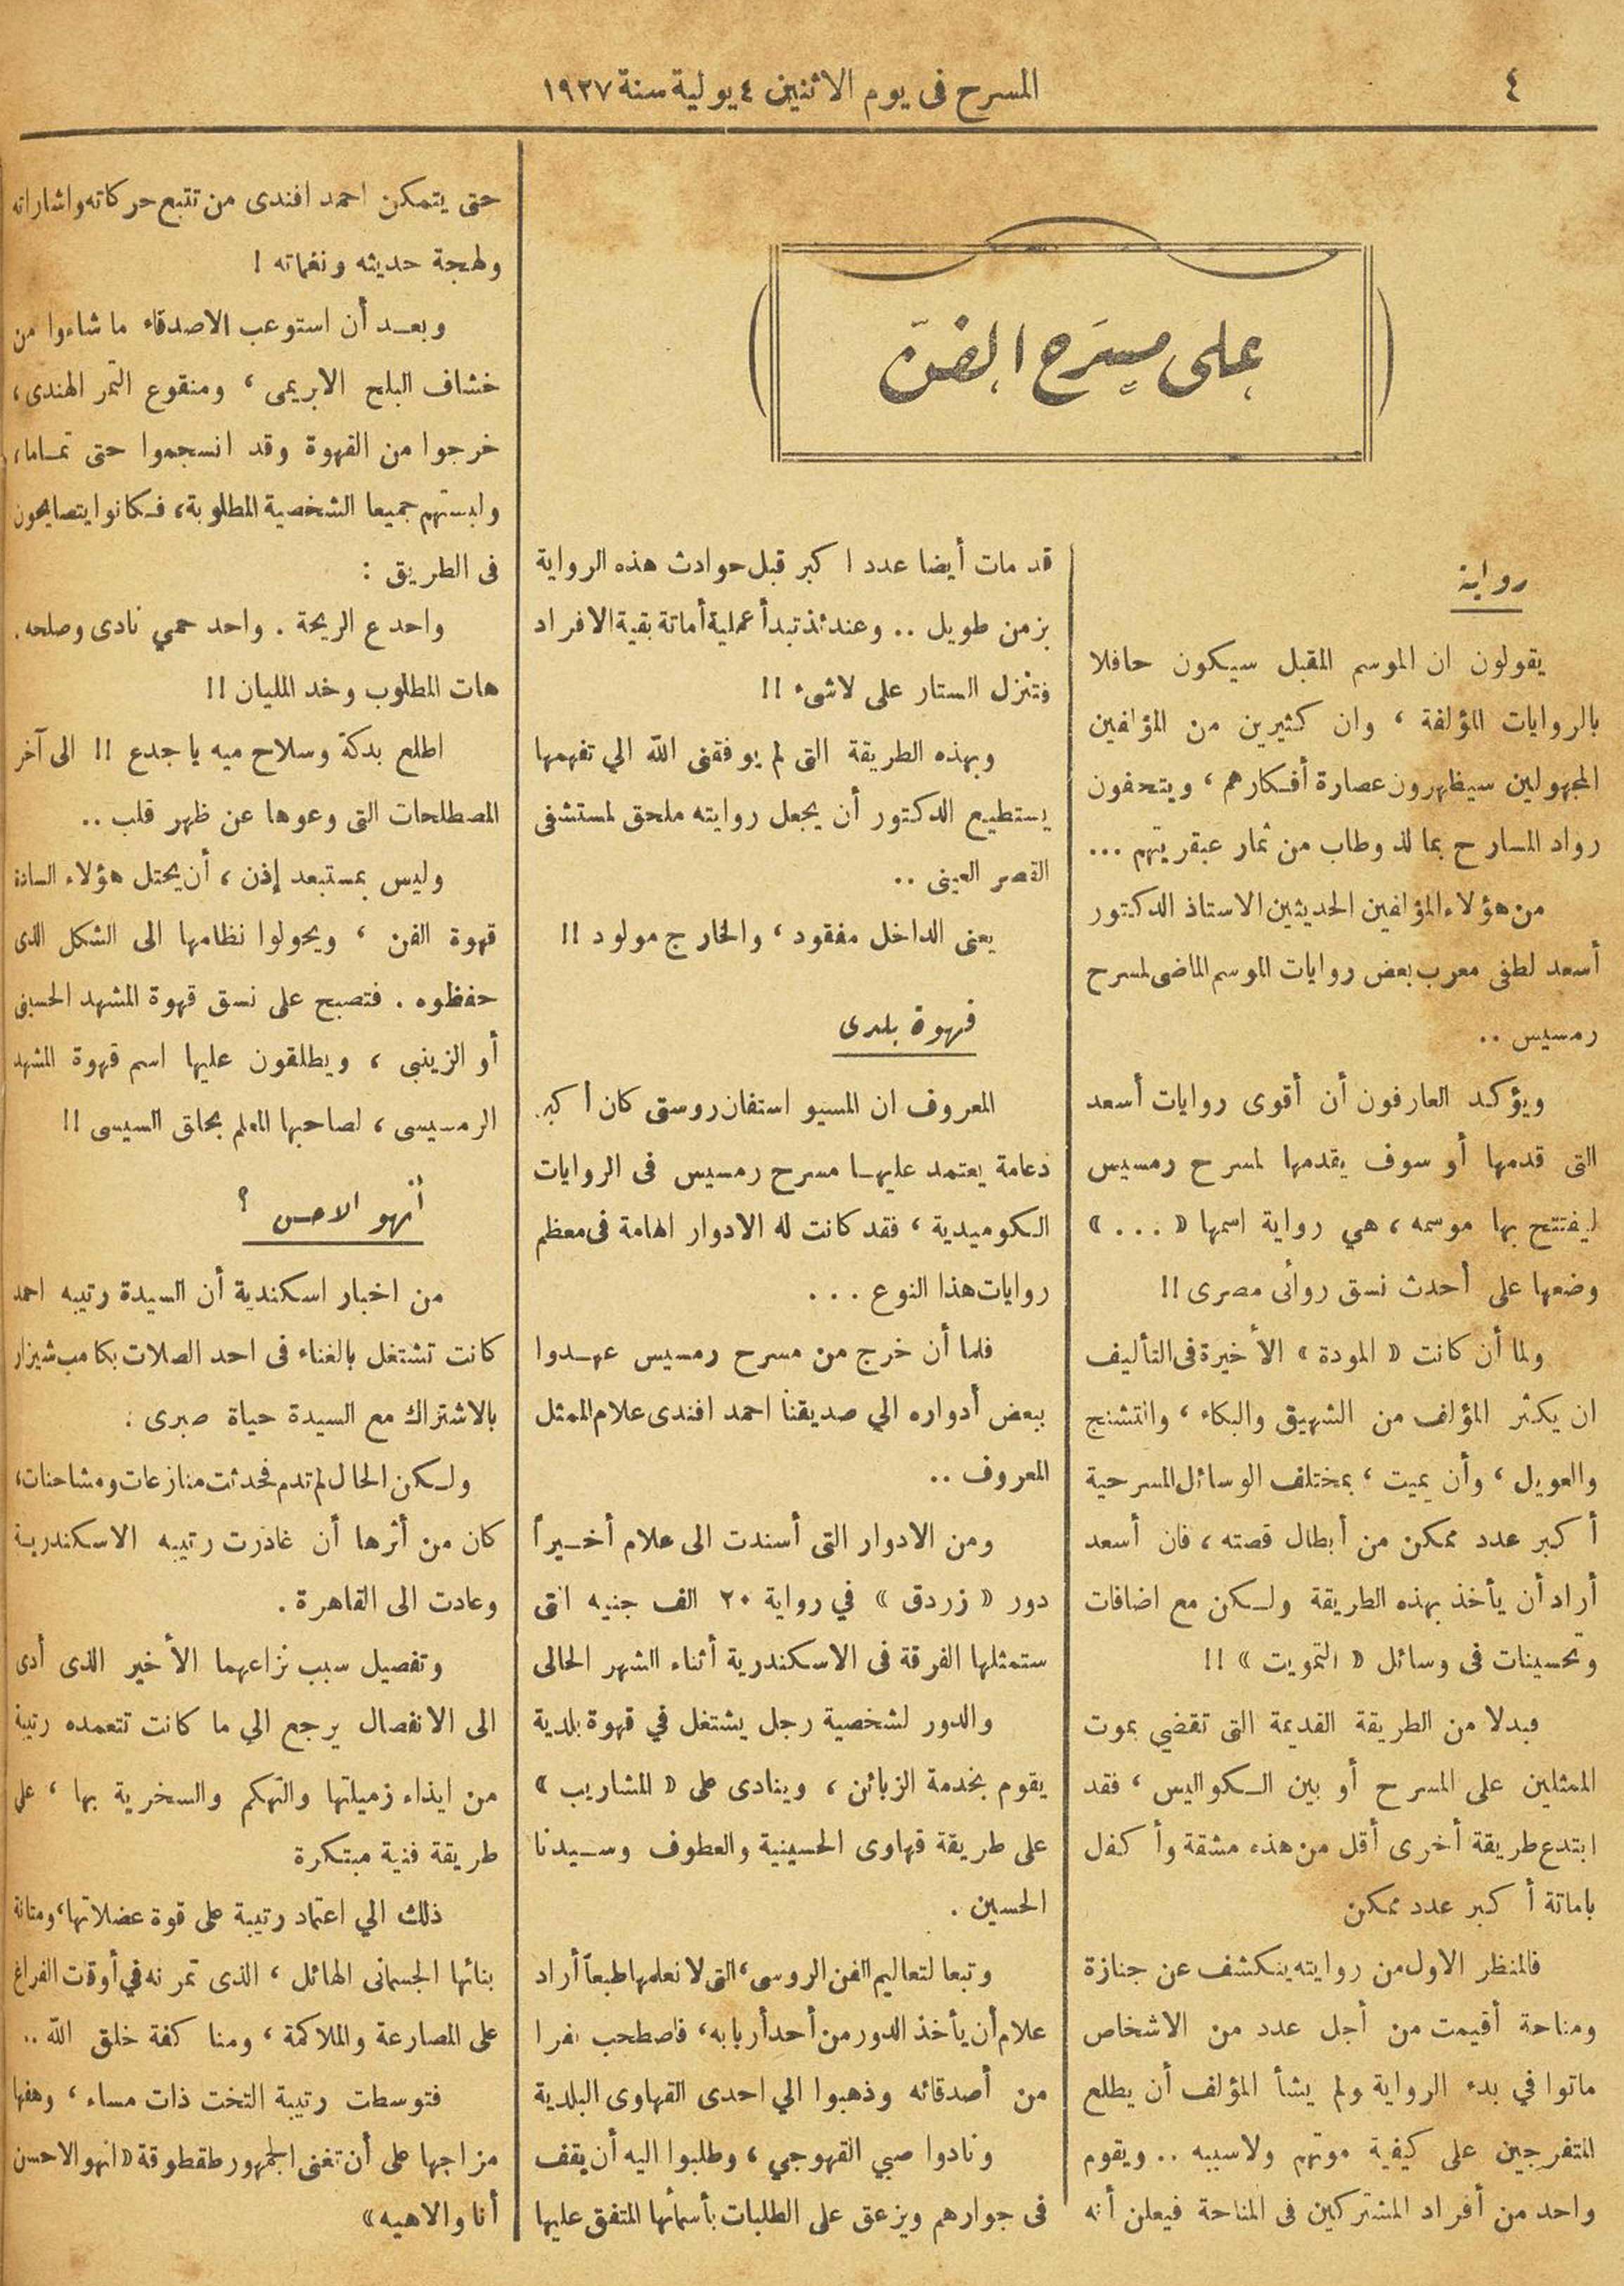 ٤
المسرح فى يوم الاثنين ٤ يولية سنة ١٩٢٧
على مسرح الفن
رواية
يقولون ان الموسم المقبل سيكون حافلا
بالروايات المؤلفة ، وان كثيرين من المؤلفين
المجهولين سيظهرون عصارة أفكارهم ، ويتحفون
رواد المسارح بما لذ وطاب من ثمار عبقريتهم ...
من هؤلاء المؤلفين الحديثين الاستاذ الدكتور
أسعد لطفى معرب بعض روايات الموسم الماضى لمسرح
رمسيس ..
ويؤكد العارفون أن أقوى روايات أسعد
التى قدمها أو سوف يقدمها لمسرح رمسيس
ليفتتح بها موسمه ، هي رواية اسمها « ... »
وضعها على أحدث نسق روائى مصرى !!
ولما أن كانت « المودة » الأخيرة فى التأليف
ان يكثر المؤلف من الشهيق والبكاء ، والتشنج
والعويل ، وأن يميت ، بمختلف الوسائل المسرحية
أكبر عدد ممكن من أبطال قصته ، فان أسعد
أراد أن يأخذ بهذه الطريقة ولكن مع اضافات
وتحسينات فى وسائل « التمويت » !!
فبدلا من الطريقة القديمة التى تقضي بموت
الممثلين على المسرح أو بين الكواليس ، فقد
ابتدع طريقة أخرى أقل من هذه مشقة وأكفل
باماتة أكبر عدد ممكن
فالمنظر الاول من روايته ينكشف عن جنازة
ومناحة أقيمت من أجل عدد من الاشخاص
ماتوا في بدء الرواية ولم يشأ المؤلف أن يطلع
المتفرجين على كيفية موتهم ولا سببه .. ويقوم
واحد من أفراد المشتركين فى المناحة فيعلن أنه
قد مات أيضا عدد اكبر قبل حوادث هذه الرواية
بزمن طويل .. وعندئذ تبدأ عملية أماتة بقية الافراد
فتنزل الستار على لاشىء !!
وبهذه الطريقة التى لم يوفقنى الله الي تفهمها
يستطيع الدكتور أن يجعل روايته ملحق لمستشفى
القصر العينى ..
يعنى الداخل مفقود ، والخارج مولود !!
قهوة بلدى
المعروف ان المسيو استفان روستى كان أكبر
دعامة يعتمد عليها مسرح رمسيس فى الروايات
الكوميدية ، فقد كانت له الادوار الهامة فى معظم
روايات هذا النوع ...
فلما أن خرج من مسرح رمسيس عهدوا
ببعض أدواره الي صديقنا احمد افندى علام الممثل
المعروف ..
ومن الادوار التى أسندت الى علام أخيراً
دور « زردق » في رواية ٢٠ الف جنيه التى
ستمثلها الفرقة فى الاسكندرية أثناء الشهر الحالى
والدور لشخصية رجل يشتغل في قهوة بلدية
يقوم بخدمة الزبائن ، وينادى على « المشاريب »
على طريقة قهاوى الحسينية والعطوف وسيدنا
الحسين .
وتبعا لتعاليم الفن الروسى ، التى لا نعلمها طبعاً أراد
علام أن يأخذ الدور من أحد أربابه ، فاصطحب نفرا
من أصدقائه وذهبوا الي احدى القهاوى البلدية
ونادوا صبي القهوجي ، وطلبوا اليه أن يقف
فى جوارهم ويزعق على الطلبات بأسمائها المتفق عليها
حتى يتمكن احمد افندى من تتبع حركاته واشاراته
ولهجة حديثه ونغماته !
وبعد أن استوعب الاصدقاء ما شاءوا من
خشاف البلح الابريمى ، ومنقوع التمر الهندى ،
خرجوا من القهوة وقد انسجموا حتى تماما ،
ولبستهم جميعا الشخصية المطلوبة ، فكانوا يتصايحون
فى الطريق :
واحد ع الريحة . واحد حمي نادى وصلحه .
هات المطلوب وخد المليان !!
اطلع بدكة وسلاح ميه يا جدع !! الى آخر
المصطلحات التى وعوها عن ظهر قلب ..
وليس بمستبعد إذن ، أن يحتل هؤلاء السادة
قهوة الفن ، ويحولوا نظامها الى الشكل الذى
حفظوه . فتصبح على نسق قهوة المشهد الحسينى
أو الزينبى ، ويطلقون عليها اسم قهوة المشهد
الرمسيسى ، لصاحبها المعلم بحلق السيسى !!
أنهو الاحسن ؟
من اخبار اسكندية أن السيدة رتيبه احمد
كانت تشتغل بالغناء فى احد الصلات بكامب شيزار
بالاشتراك مع السيدة حياة صبرى :
ولكن الحال لم تدم فحدثت منازعات ومشاحنات ،
كان من أثرها أن غادرت رتيبه الاسكندرية
وعادت الى القاهرة .
وتفصيل سبب نزاعهما الأخير الذى أدى
الى الانفصال يرجع الي ما كانت تتعمده رتيبة
من ايذاء زميلتها والتهكم والسخرية بها ، على
طريقة فنية مبتكرة
ذلك الي اعتماد رتيبة على قوة عضلاتها ، ومتانة
بنائها الجسمانى الهائل ، الذى تمرنه في أوقات الفراغ
على المصارعة والملاكمة ، ومناكفة خلق الله ..
فتوسطت رتيبة التخت ذات مساء ، وهفها
مزاجها على أن تغنى الجمهور طقطوقة « انهو الاحسن
أنا والا هيه »